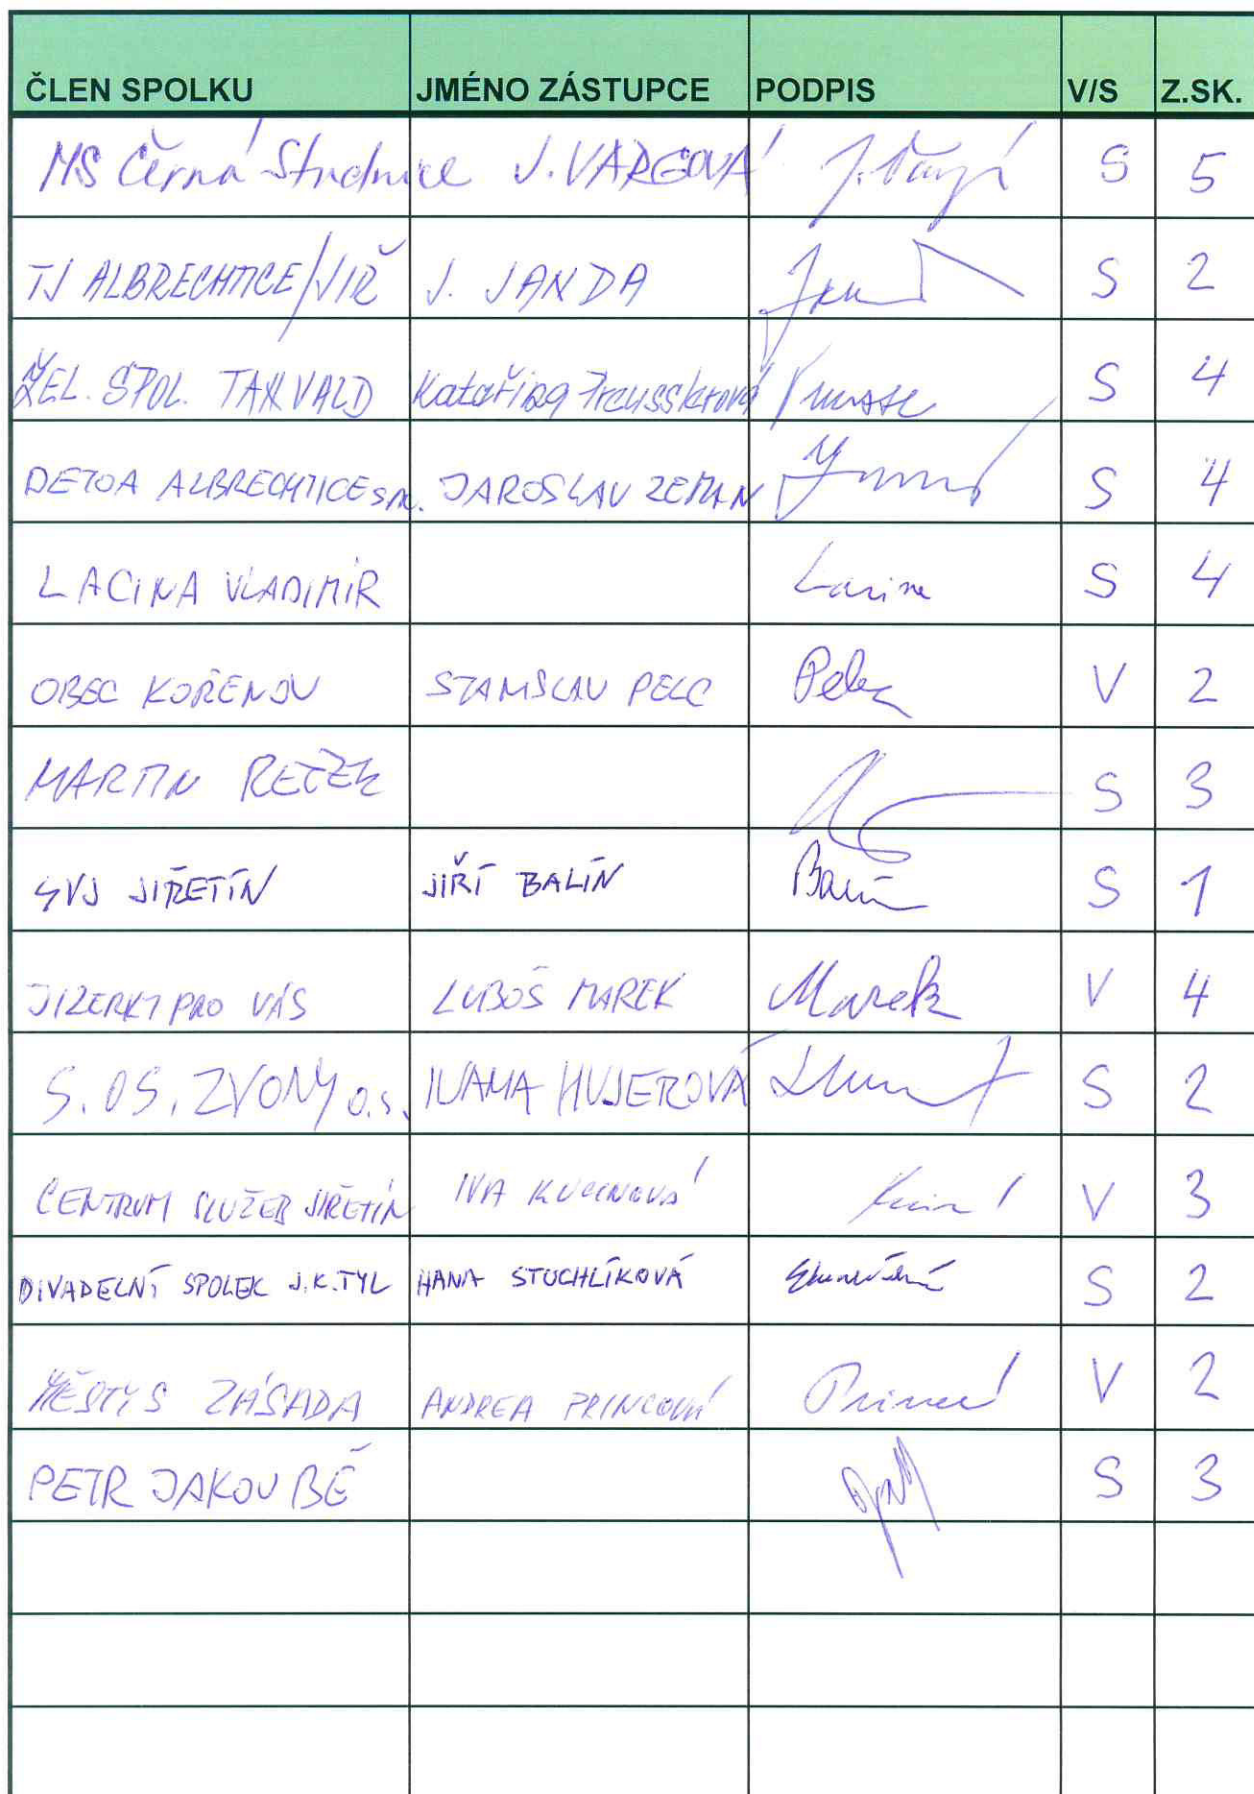 ČLEN SPOLKU JMÉNO ZÁSTUPCE PODPIS V/S Z.SK.
MS Černá Studnice J. VARGOVÁ S 5
TJ ALBRECHTICE/JIŘ J. JANDA S 2
ŽEL. SPOL. TANVALD Kateřina Preusslerová S 4
DETOA ALBRECHTICE s.r.o. JAROSLAV ZEMAN S 4
LACINA VLADIMÍR Lacina S 4
OBEC KOŘENOV STANISLAV PELC Pelc V 2
MARTIN ŘEŽEK S 3
SVJ JIŘETÍN JIŘÍ BALÍN Balín S 1
JIZERKY PRO VÁS LUBOŠ MAREK Marek V 4
S.OS. ZVONY o.s. IVANA HUJEROVÁ S 2
CENTRUM SLUŽEB JIŘETÍN IVA V 3
DIVADELNÍ SPOLEK J.K.TYL HANA STUCHLÍKOVÁ S 2
MĚSTYS ZÁSADA ANDREA PRINCOVÁ V 2
PETR JAKOUBĚ S 3